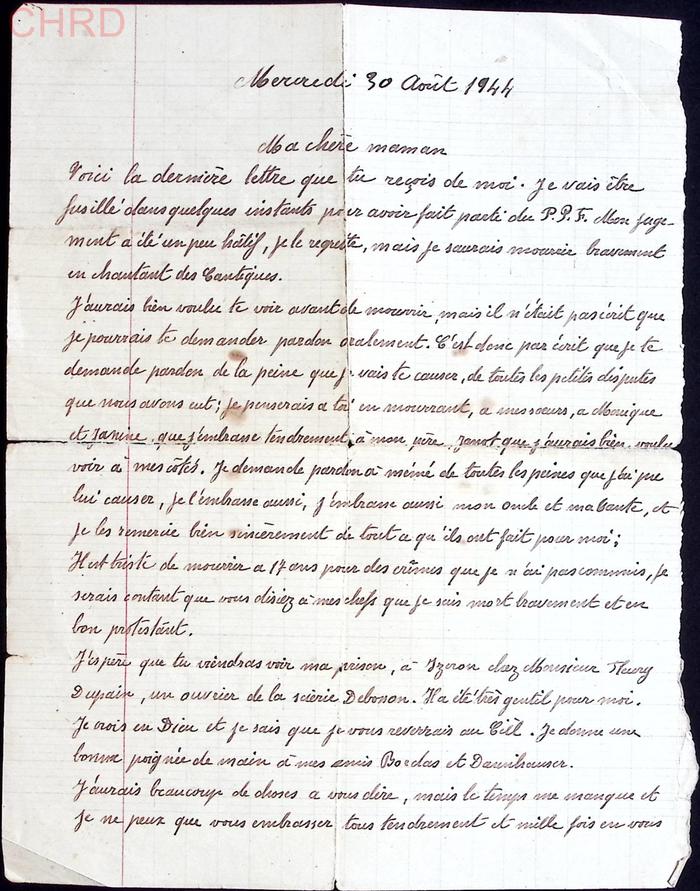 CHRD
Mercredi 30 Août 1944
Ma chère maman
Voici la dernière lettre que tu reçois de moi. Je vais être
fusillé dans quelques instants pour avoir fait parti du P.P.F. Mon juge-
ment a été un peu hâtif, je le regrette, mais je saurais mourrir bravement
en chantant des Cantiques.
J'aurais bien voulu te voir avant de mourrir, mais il n'était pas écrit que
je pourrais te demander pardon oralement. C'est donc par écrit que je te
demande pardon de la peine que je vais te causer, de toutes les petites disputes
que nous avons eut; je penserais a toi en mourrant, a mes sœurs, a Monique
et Janine que j'embrasse tendrement, à mon père, Janot que j'aurais bien voulu
voir à mes côtés. Je demande pardon à mémé de toutes les peines que j'ai pu
lui causer, je l'embrasse aussi, j'embrasse aussi mon oncle et ma tante, et
je les remercie bien sincèrement de tout ce qu'ils ont fait pour moi;
Il est triste de mourrir a 17 ans pour des crîmes que je n'ai pas commis, je
serais contant que vous disiez à mes chefs que je sois mort bravement et en
bon protestant.
J'espère que tu viendras voir ma prison, à Izeron chez Monsieur Fleury
Dupain, un ouvrier de la scierie Debonon. Il a été très gentil pour moi.
Je crois en Dieu et je sais que je vous reverrais au Ciel. Je donne une
bonne poignée de main à mes amis Bordas et Dannhauser.
J'aurais beaucoup de choses a vous dire, mais le temps me manque et
je ne peux que vous embrasser tous tendrement et mille fois en vous